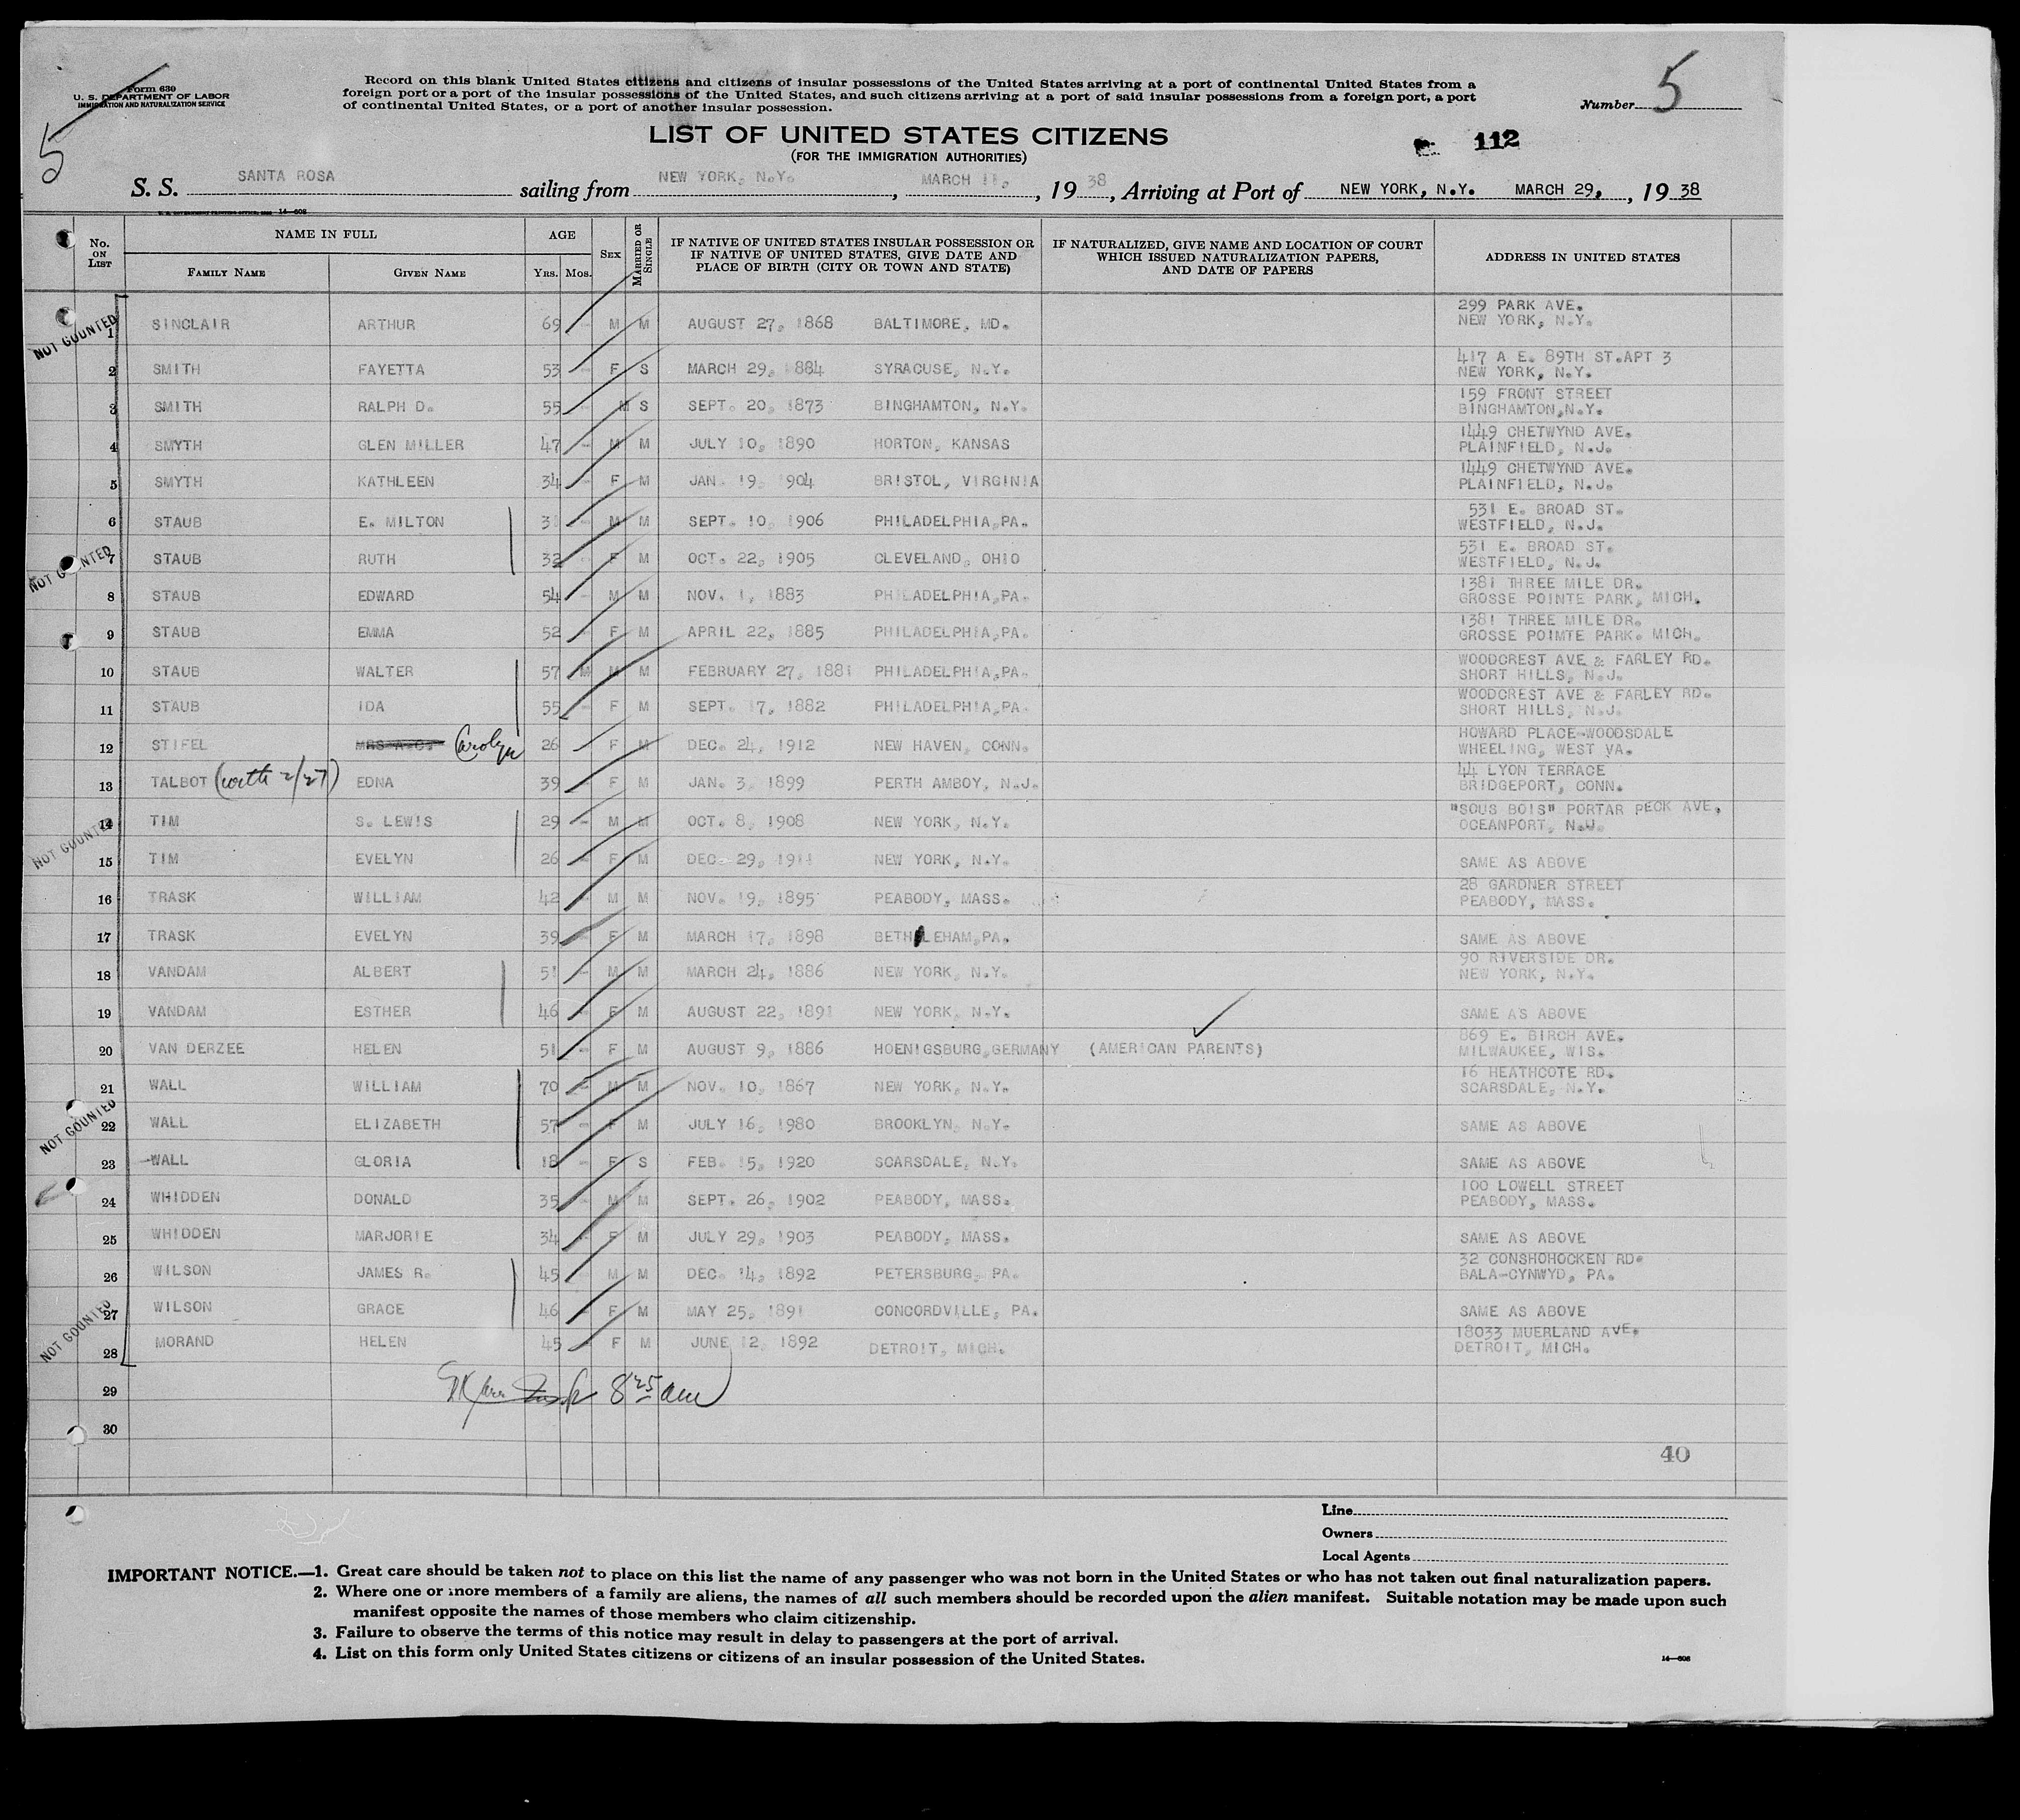 Form 630
U. S. DEPARTMENT OF LABOR
IMMIGRATION AND NATURALIZATION SERVICE
5
Record on this blank United States citizens and citizens of insular possessions of the United States arriving at a port of continental United States from a
foreign port or a port of the insular possessions of the United States, and such citizens arriving at a port of said insular possessions from a foreign port, a port
of continental United States, or a port of another insular possession.
Number 5
LIST OF UNITED STATES CITIZENS
(FOR THE IMMIGRATION AUTHORITIES)
112
S. S. SANTA ROSA sailing from NEW YORK, N.Y., MARCH 11, 1938, Arriving at Port of NEW YORK, N.Y. MARCH 29, 1938
U. S. GOVERNMENT PRINTING OFFICE 14—608
No. ON LIST NAME IN FULL FAMILY NAME GIVEN NAME AGE Yrs. Mos. SEX MARRIED OR SINGLE IF NATIVE OF UNITED STATES INSULAR POSSESSION OR IF NATIVE OF UNITED STATES, GIVE DATE AND PLACE OF BIRTH (CITY OR TOWN AND STATE) IF NATURALIZED, GIVE NAME AND LOCATION OF COURT WHICH ISSUED NATURALIZATION PAPERS, AND DATE OF PAPERS ADDRESS IN UNITED STATES
NOT COUNTED
1 SINCLAIR ARTHUR 69 - M M AUGUST 27, 1868 BALTIMORE, MD. 299 PARK AVE. NEW YORK, N.Y.
2 SMITH FAYETTA 53 - F S MARCH 29, 1884 SYRACUSE, N.Y. 417 A E. 89TH ST.APT 3 NEW YORK, N.Y.
3 SMITH RALPH D. 55 - M S SEPT. 20, 1873 BINGHAMTON, N.Y. 159 FRONT STREET BINGHAMTON,N.Y.
4 SMYTH GLEN MILLER 47 - M M JULY 10, 1890 HORTON, KANSAS 1449 CHETWYND AVE. PLAINFIELD, N.J.
5 SMYTH KATHLEEN 34 - F M JAN. 19, 1904 BRISTOL, VIRGINIA 1449 CHETWYND AVE. PLAINFIELD, N.J.
6 STAUB E. MILTON 31 - M M SEPT. 10, 1906 PHILADELPHIA,PA. 531 E. BROAD ST. WESTFIELD, N.J.
NOT COUNTED
7 STAUB RUTH 32 - F M OCT. 22, 1905 CLEVELAND, OHIO 531 E. BROAD ST. WESTFIELD, N.J.
8 STAUB EDWARD 54 - M M NOV. 1, 1883 PHILADELPHIA,PA. 1381 THREE MILE DR. GROSSE POINTE PARK, MICH.
9 STAUB EMMA 52 - F M APRIL 22, 1885 PHILADELPHIA,PA. 1381 THREE MILE DR. GROSSE POIMTE PARK. MICH.
10 STAUB WALTER 57 M M M FEBRUARY 27, 1881 PHILADELPHIA,PA. WOODCREST AVE & FARLEY RD. SHORT HILLS, N.J.
11 STAUB IDA 55 F M SEPT. 17, 1882 PHILADELPHIA,PA. WOODCREST AVE & FARLEY RD. SHORT HILLS, N.J.
12 STIFEL MRS A.C. Carolyn 26 F M DEC. 24, 1912 NEW HAVEN, CONN. HOWARD PLACE-WOODSDALE WHEELING, WEST VA.
13 TALBOT (with 2/27) EDNA 39 - F M JAN. 3, 1899 PERTH AMBOY, N.J. 44 LYON TERRACE BRIDGEPORT, CONN.
NOT COUNTED
14 TIM S. LEWIS 29 - M M OCT. 8, 1908 NEW YORK, N.Y. "SOUS BOIS" PORTAR PECK AVE. OCEANPORT, N.J.
15 TIM EVELYN 26 - F M DEC. 29, 1911 NEW YORK, N.Y. SAME AS ABOVE
16 TRASK WILLIAM 42 - M M NOV. 19, 1895 PEABODY, MASS. 28 GARDNER STREET PEABODY, MASS.
17 TRASK EVELYN 39 - F M MARCH 17, 1898 BETHLEHAM,PA. SAME AS ABOVE
18 VANDAM ALBERT 51 - M M MARCH 24, 1886 NEW YORK, N.Y. 90 RIVERSIDE DR. NEW YORK, N.Y.
19 VANDAM ESTHER 46 - F M AUGUST 22, 1891 NEW YORK, N.Y. SAME AS ABOVE
20 VAN DERZEE HELEN 51 - F M AUGUST 9, 1886 HOENIGSBURG,GERMANY (AMERICAN PARENTS) 869 E. BIRCH AVE. MILWAUKEE, WIS.
21 WALL WILLIAM 70 - M M NOV. 10, 1867 NEW YORK, N.Y. 16 HEATHCOTE RD. SCARSDALE, N.Y.
NOT COUNTED
22 WALL ELIZABETH 57 - F M JULY 16, 1980 BROOKLYN, N.Y. SAME AS ABOVE
23 WALL GLORIA 18 - F S FEB. 15, 1920 SCARSDALE, N.Y. SAME AS ABOVE
24 WHIDDEN DONALD 35 - M M SEPT. 26, 1902 PEABODY, MASS. 100 LOWELL STREET PEABODY, MASS.
25 WHIDDEN MARJORIE 34 - F M JULY 29, 1903 PEABODY, MASS. SAME AS ABOVE
26 WILSON JAMES R. 45 - M M DEC. 14, 1892 PETERSBURG, PA. 32 CONSHOHOCKEN RD. BALA-CYNWYD, PA.
NOT COUNTED
27 WILSON GRACE 46 - F M MAY 25, 1891 CONCORDVILLE, PA. SAME AS ABOVE
28 MORAND HELEN 45 - F M JUNE 12, 1892 DETROIT, MICH. 18033 MUERLAND AVE. DETROIT, MICH.
29 8 25 am
30
40
Line
Owners
Local Agents
IMPORTANT NOTICE.—1. Great care should be taken not to place on this list the name of any passenger who was not born in the United States or who has not taken out final naturalization papers.
2. Where one or more members of a family are aliens, the names of all such members should be recorded upon the alien manifest. Suitable notation may be made upon such
manifest opposite the names of those members who claim citizenship.
3. Failure to observe the terms of this notice may result in delay to passengers at the port of arrival.
4. List on this form only United States citizens or citizens of an insular possession of the United States.
14—608